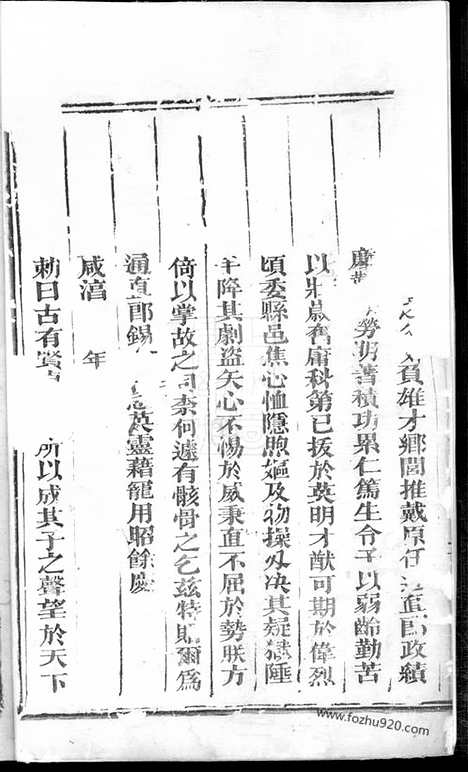 負雄才鄉閭推戴原任 直郎政績
勞朔善積功累仁篤生令子以弱齡勤苦
以壯歲奮庸科第已拔於英明才猷可期於偉烈
頃委縣邑焦心恤隱煦嫗及物操 决其疑獄陲
手降其劇盜矢心不惕於威秉直不屈於勢朕方
倚以掌故之 柰何遽有骸骨之乞兹特 爾爲
通直郎錫 英靈藉寵用昭餘慶
咸淳 年
勅曰古有賢 所以成其子之聲望於天下
www.fozhu920.com